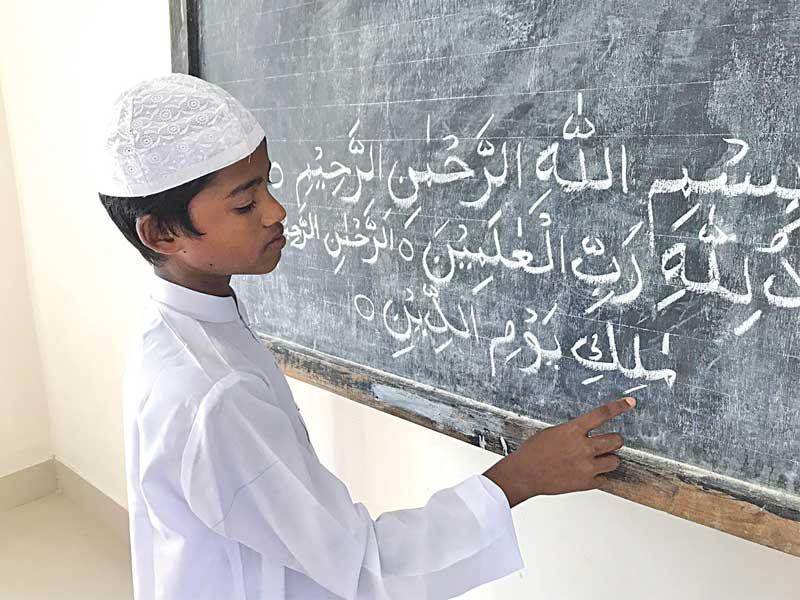 بِسْمِ اللّٰهِ الرَّحْمٰنِ الرَّحِيْمِ ○
لِلّٰهِ رَبِّ الْعٰلَمِيْنَ ○ الرَّحْمٰنِ
مٰلِكِ يَوْمِ الدِّيْنِ ○